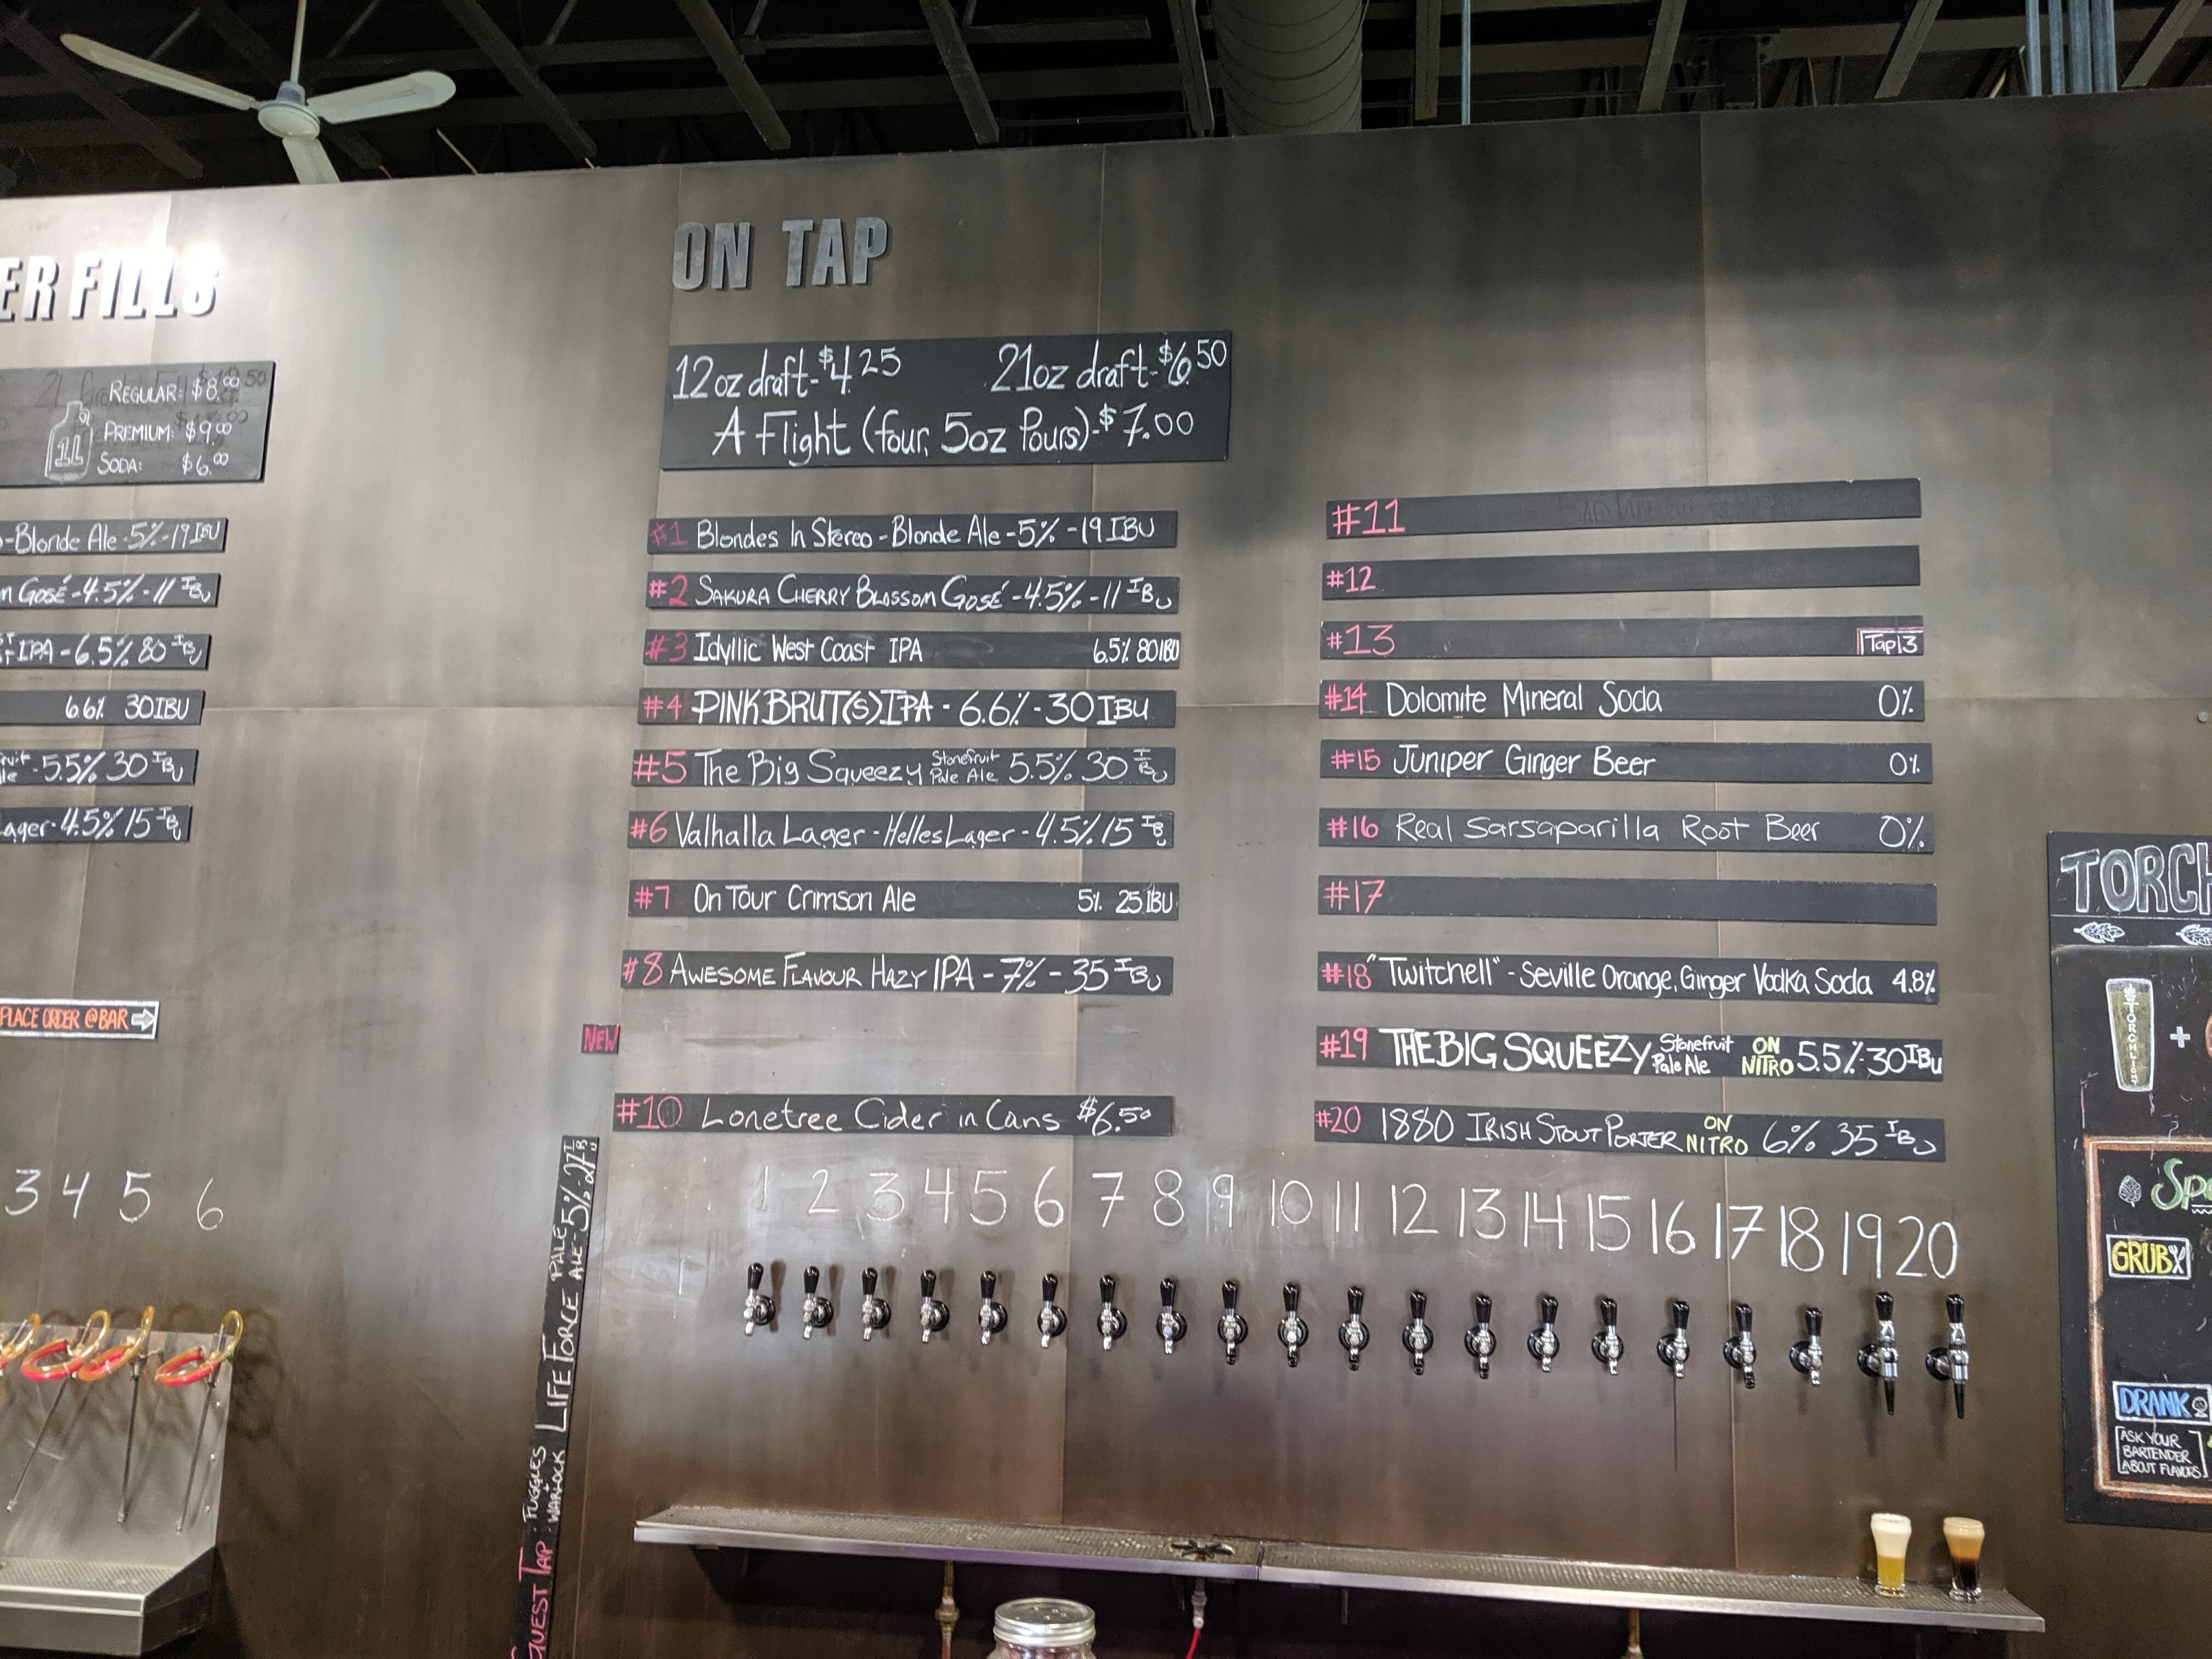 ER FILLS
REGULAR: $8.00
PREMIUM: $9.00
1L
SODA: $6.00
-Blonde Ale-5%-19 IBU
Gosé-4.5%-11 IBU
IPA-6.5% 80 IBU
6.6% 30IBU
5.5% 30 IBU
ager-4.5% 15 IBU
PLACE ORDER @BAR
3 4 5 6
ON TAP
12oz draft-$4.25 21oz draft-$6.50
A Flight (four, 5oz Pours)-$7.00
#1 Blondes In Stereo-Blonde Ale-5%-19 IBU
#2 SAKURA CHERRY BLOSSOM GOSÉ-4.5%-11 IBU
#3 Idyllic West Coast IPA 6.5% 80IBU
#4 PINK BRUT(S) IPA-6.6%-30 IBU
#5 The Big Squeezy Stonefruit Pale Ale 5.5% 30 IBU
#6 Valhalla Lager-Helles Lager-4.5% 15 IB
#7 On Tour Crimson Ale 5% 25 IBU
#8 AWESOME FLAVOUR HAZY IPA-7%-35 IBU
NEW
#10 Lonetree Cider in Cans $6.50
GUEST TAP: FUGGLES + WARLOCK LIFE FORCE PALE ALE-5%-27 IBU
#11
#12
#13 Tap13
#14 Dolomite Mineral Soda 0%
#15 Juniper Ginger Beer 0%
#16 Real Sarsaparilla Root Beer 0%
#17
#18 "Twitchell"-Seville Orange, Ginger Vodka Soda 4.8%
#19 THE BIG SQUEEZY Stonefruit Pale Ale ON NITRO 5.5%-30 IBU
#20 1880 IRISH STOUT PORTER ON NITRO 6% 35 IBU
1 2 3 4 5 6 7 8 9 10 11 12 13 14 15 16 17 18 19 20
TORCH
TORCHLIGHT
+
Spe
GRUB
DRANK
ASK YOUR
BARTENDER
ABOUT FLAVORS